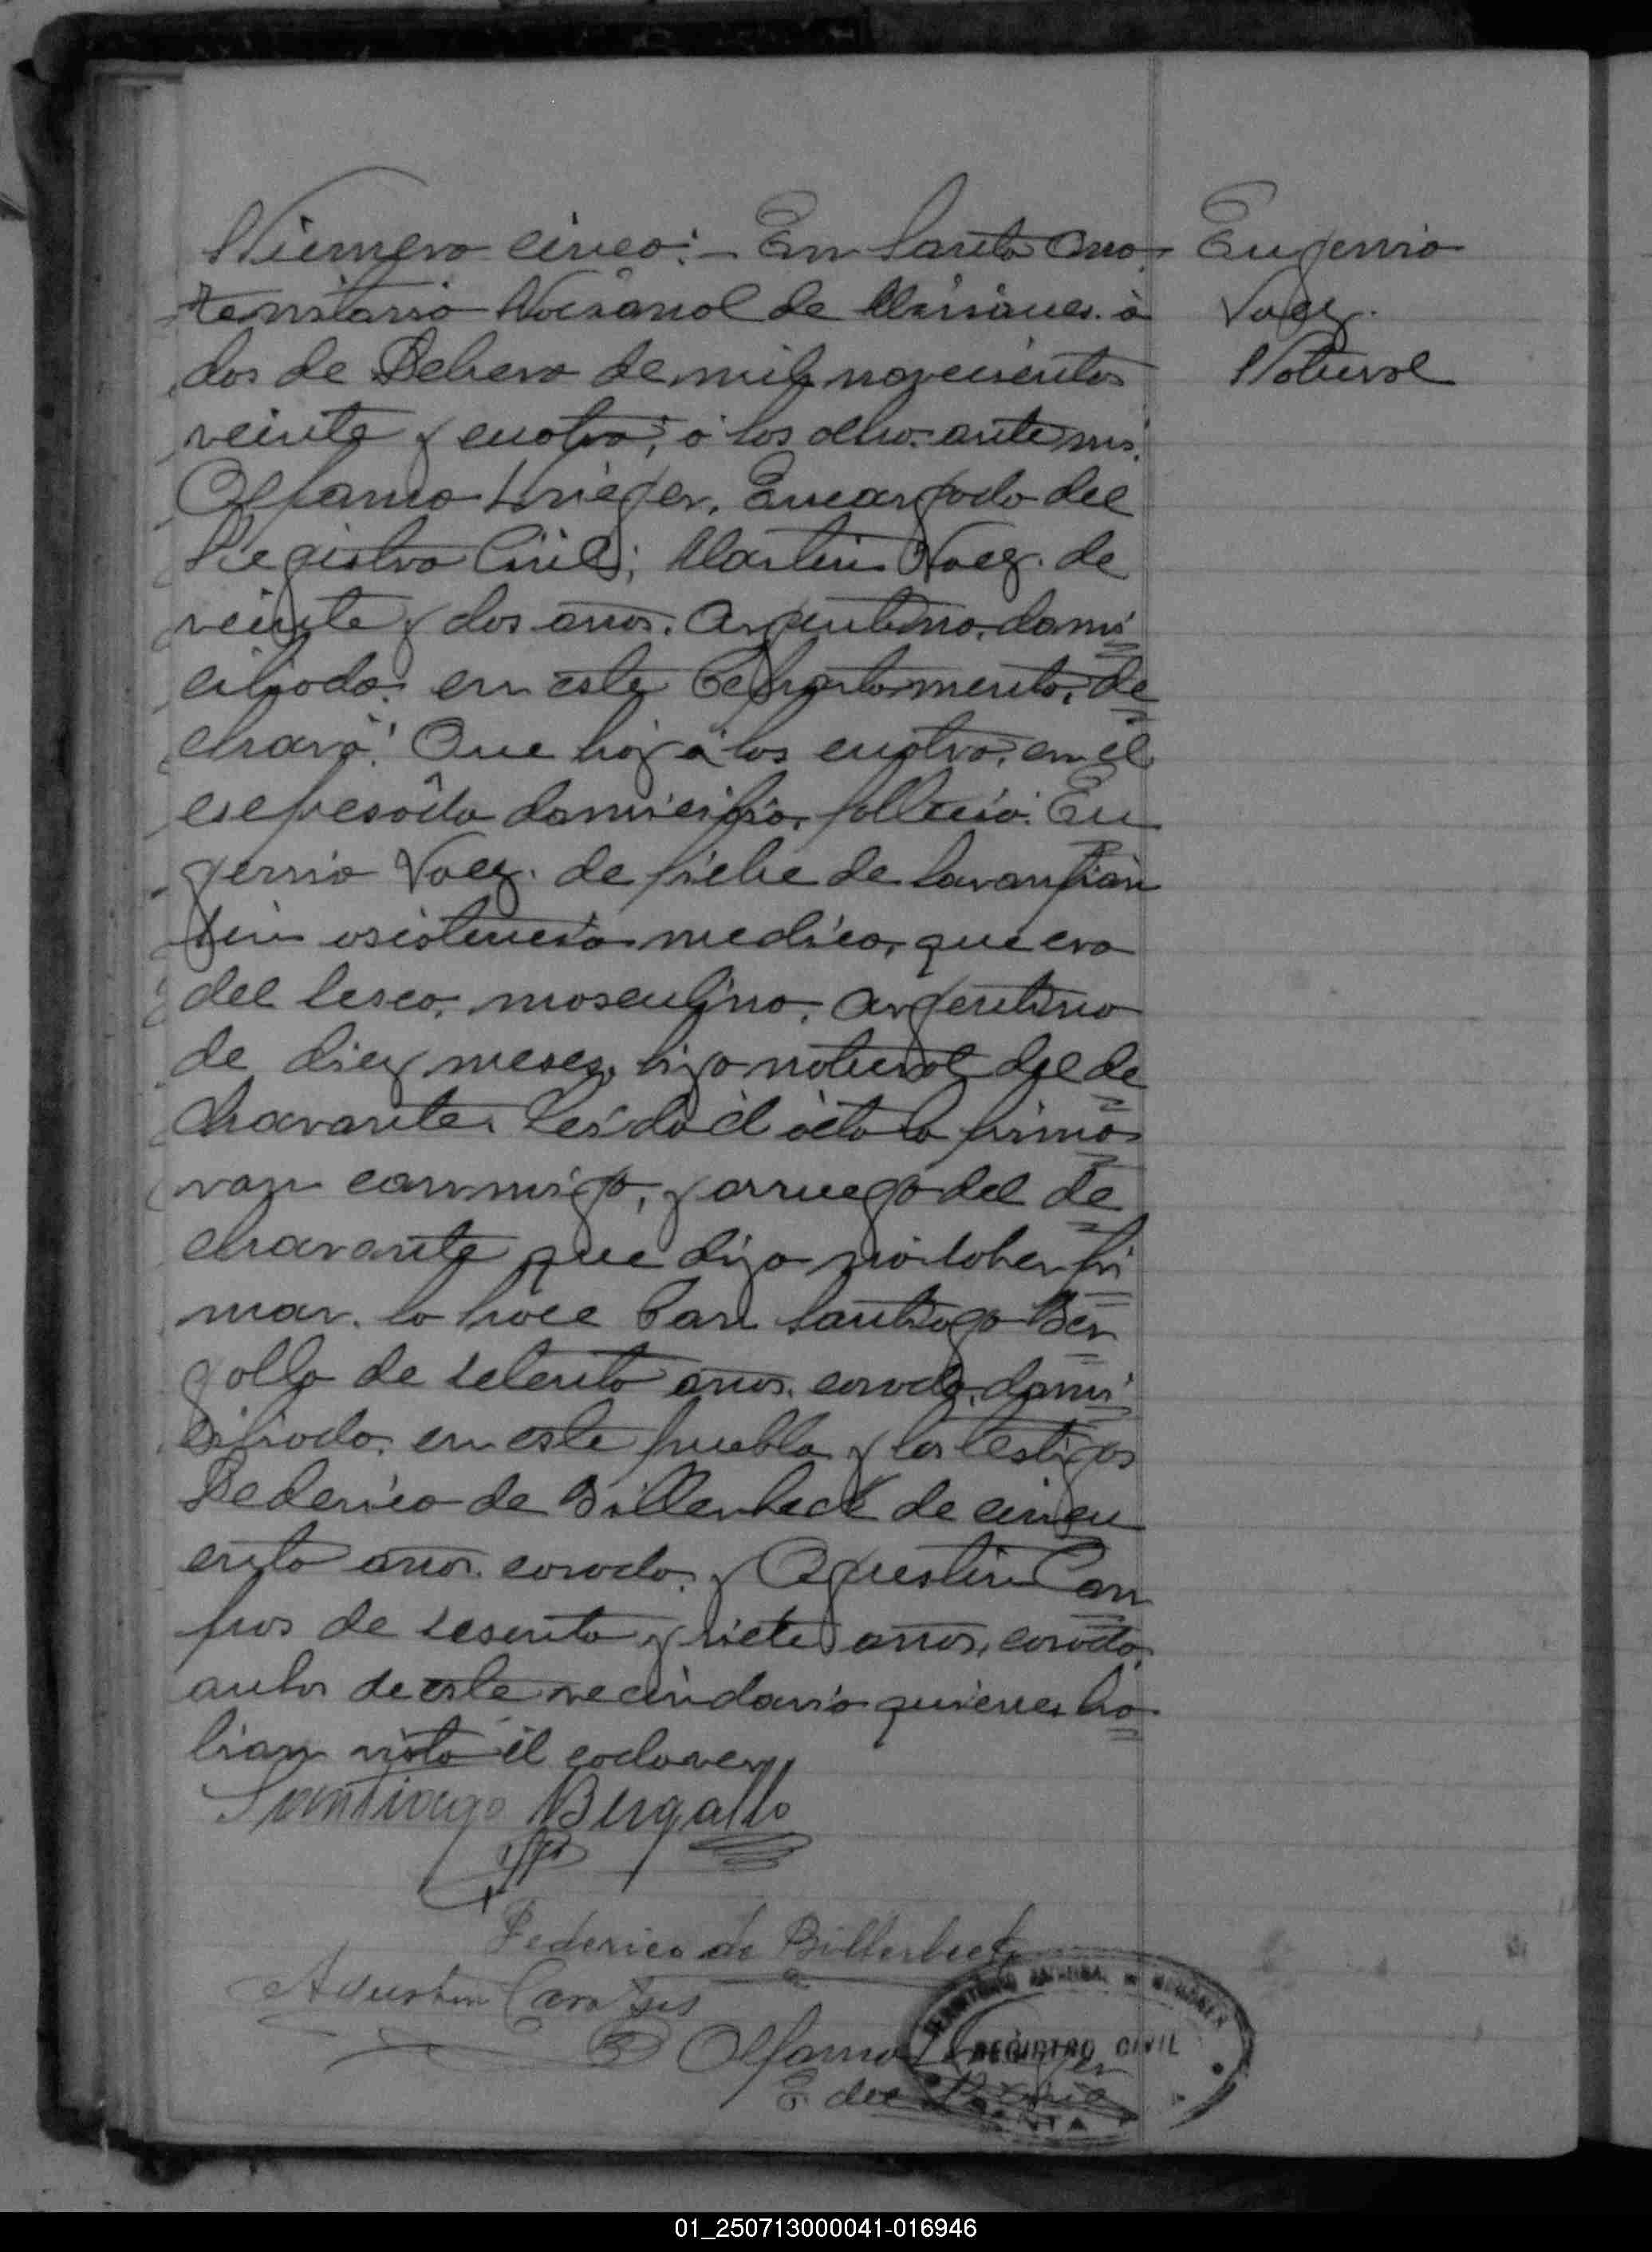 Número cinco:- En Santa Ana
territorio Nacional de Misiones. à
dos de Febrero de mil novecientos
veinte y cuatro, à las ocho: ante mi.
Alfonso Krieger, Encargado del
Registro Civil; Martin Vaez. de
veinte y dos años. Argentino. domi
ciliado. en este Departamento, de
claró: Que hoy à las cuatro, en el
espresado domicilio, falleció: Eu
genio Vaez. de fiebre de
sin asistencia medica, que era
del Secso. masculino. Argentino
de diez meses, hijo natural del de
clarante. Leida el acta la firma
ran conmigo, y arruego del de
clarante que dijo no saber fir
mar. lo hace Don Santiago Ber
gallo de setenta años. casado. domi
ciliado. en este pueblo y los testigos
Federico de Billerbeck de cincu
enta años. casado. y Agustin Cam
pos de sesenta y siete años, casado.
anbos de este vecindario quienes ha
bian visto el cadaver
Santiago Bergallo
Federico de Billerbeck
Agustin
Alfonso Krieger
E. del
Eugenio
Vaez.
Natural
TERRITORIO NACIONAL DE MISIONES
REGISTRO CIVIL
01_250713000041-016946